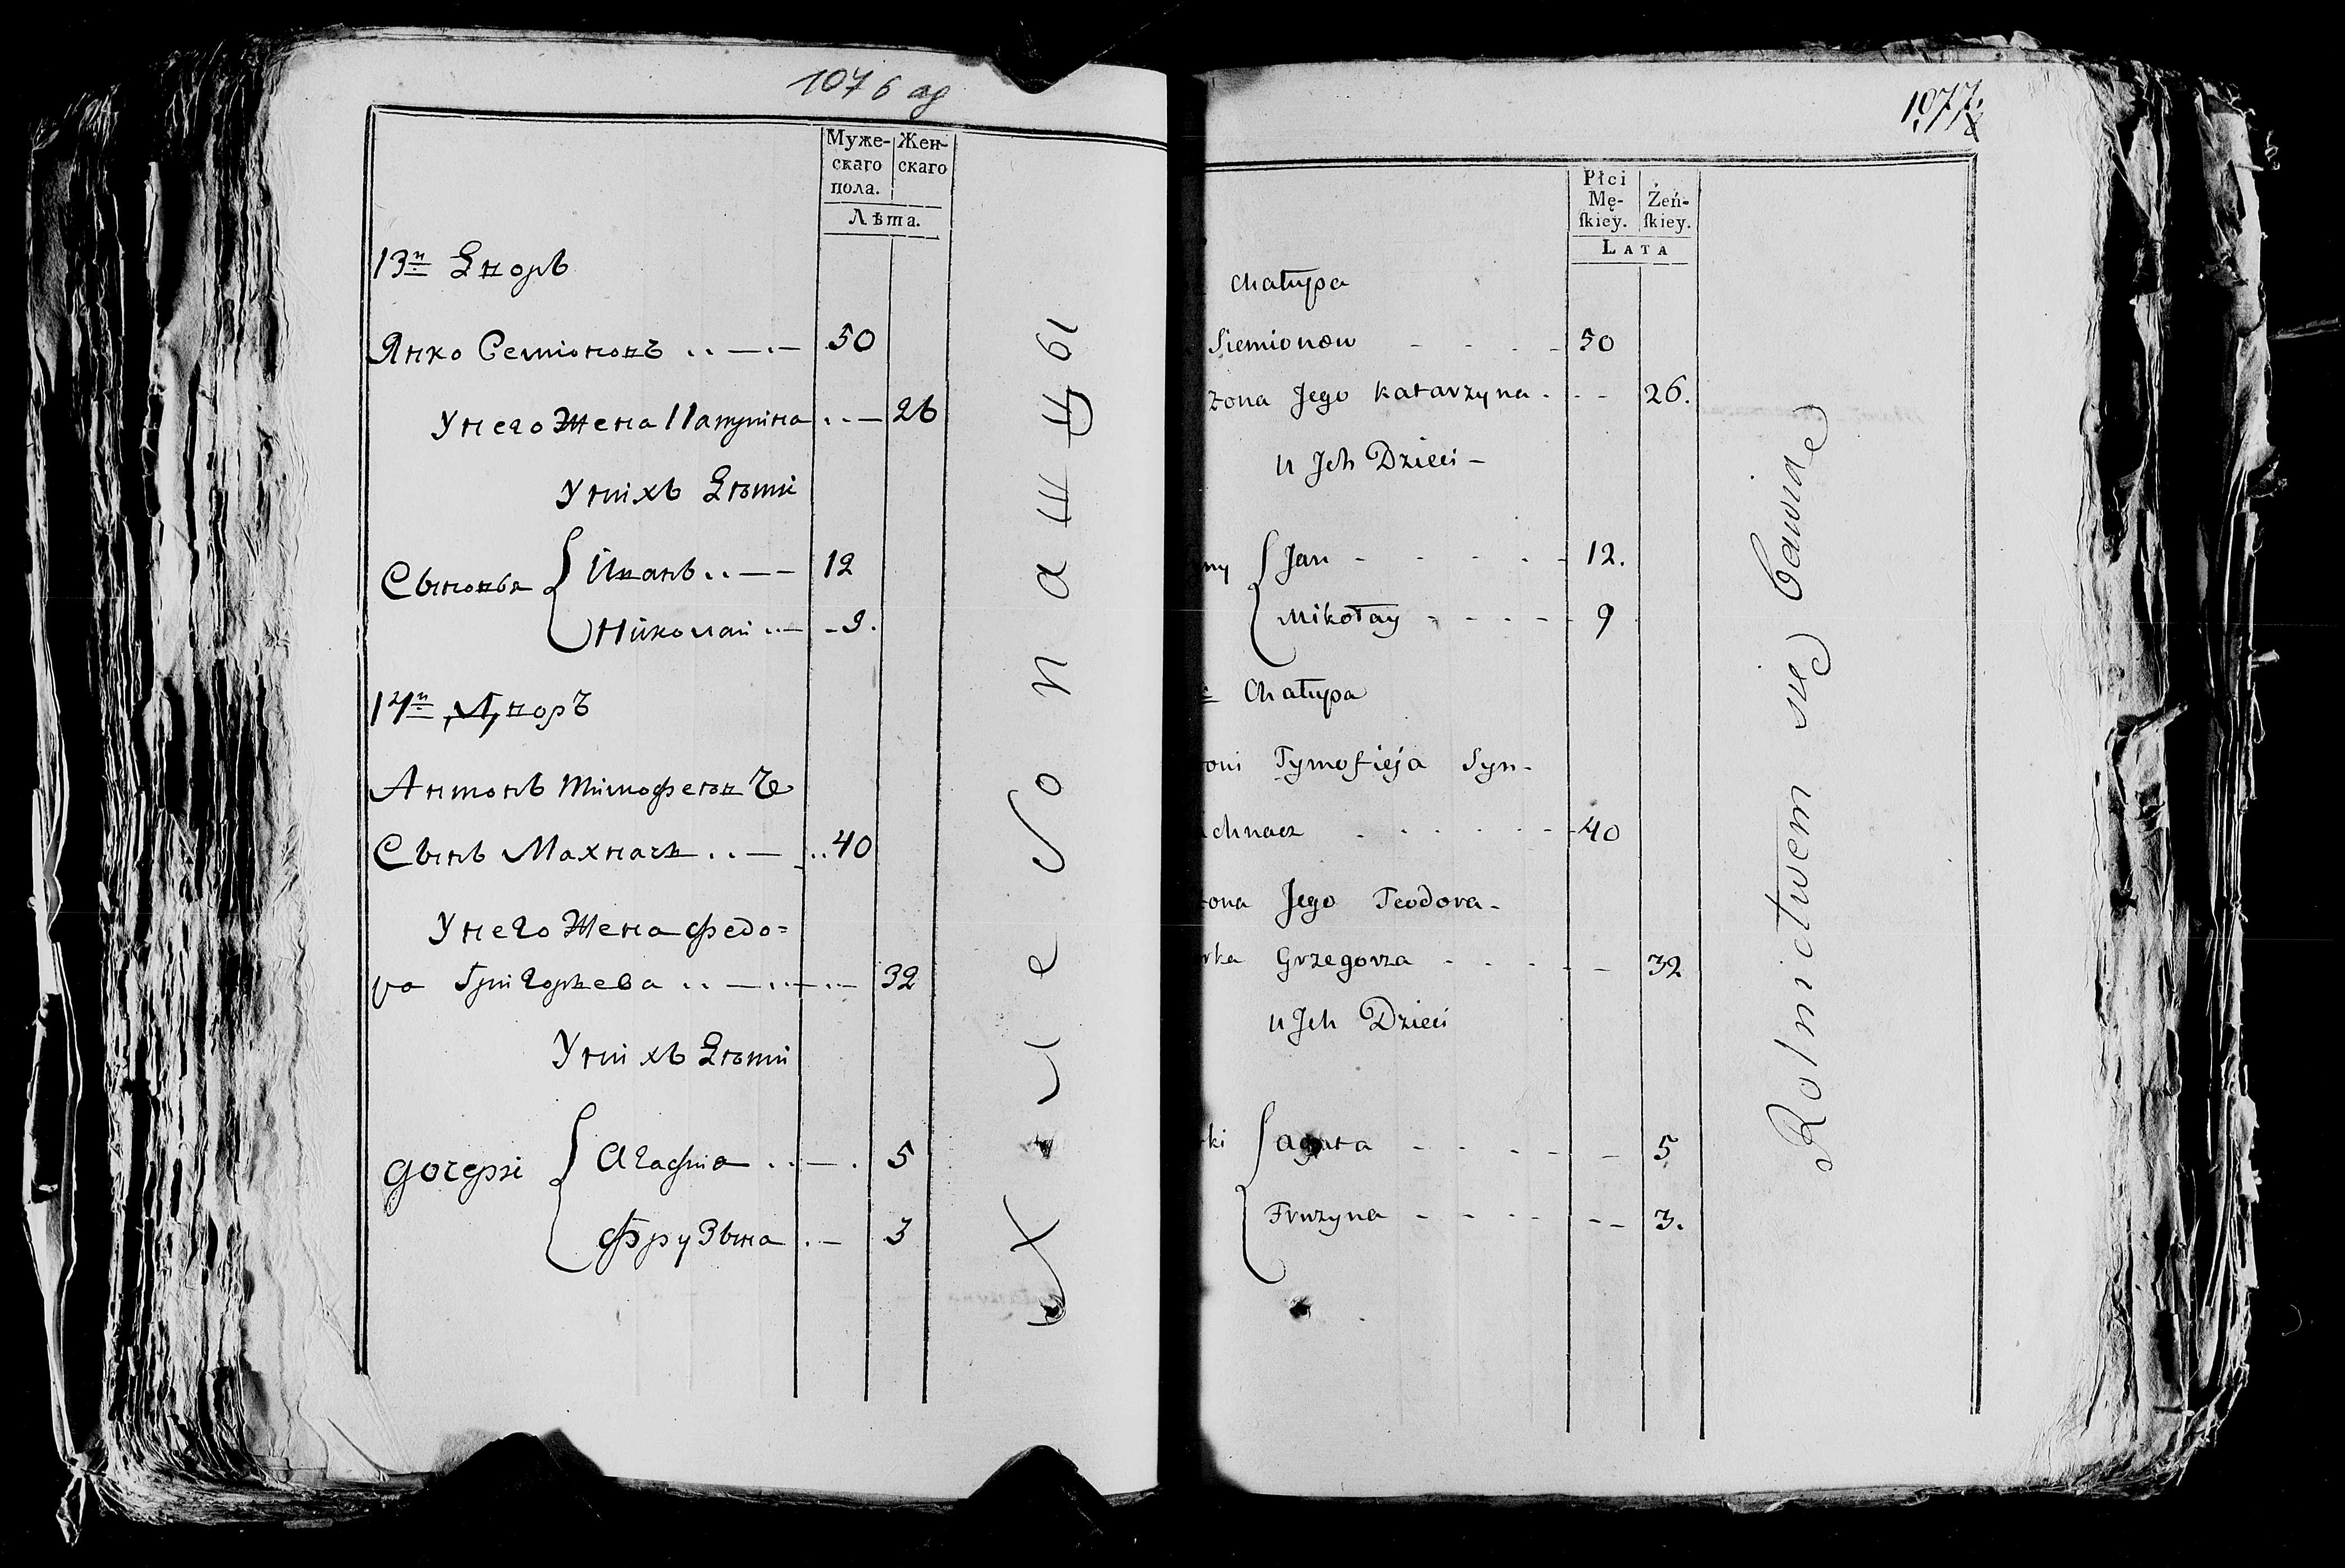 1076 об
Муже-
скаго
пола.
Жен-
скаго
Лѣта.
13й Дворъ
Янко Семионовъ 50
У него Жена Катрина 26
У нихъ Дѣти
Сыновья
Иванъ 12
Николай 9.
14й Дворъ
Антонъ Тимофеговъ
Сынъ Махначъ 40
У него Жена Федо=
ра Григорьева 32
У нихъ Дѣти
Дочери
Агафиа 5
Фрузына 3
Хлебопашцы
1077.
Płci
Mę-
ſkiey.
Żeń-
ſkiey.
LATA
Chałupa
Siemionow 50
żona Jego Katarzyna 26.
u Jch Dzieci
ny
Jan 12.
Mikołay 9
Chałupa
oni Tymofieja Syn
chnacz 40
ona Jego Teodora
rka Grzegorza 32
u Jch Dzieci
ki
Agata 5
Fruzyna 3.
Rolnictwem się bawią